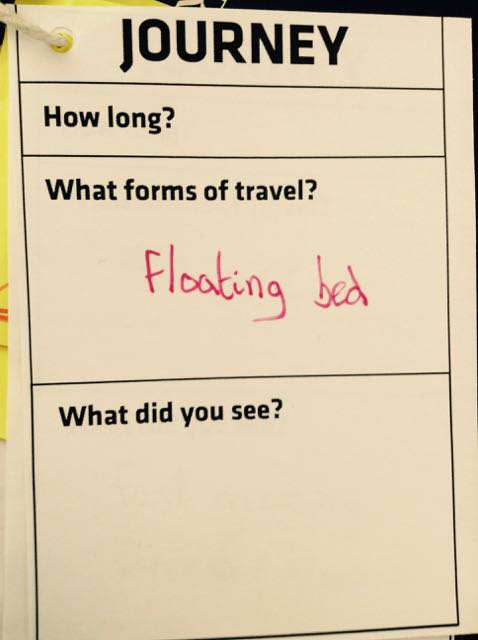 JOURNEY
How long?
What forms of travel?
Floating bed
What did you see?